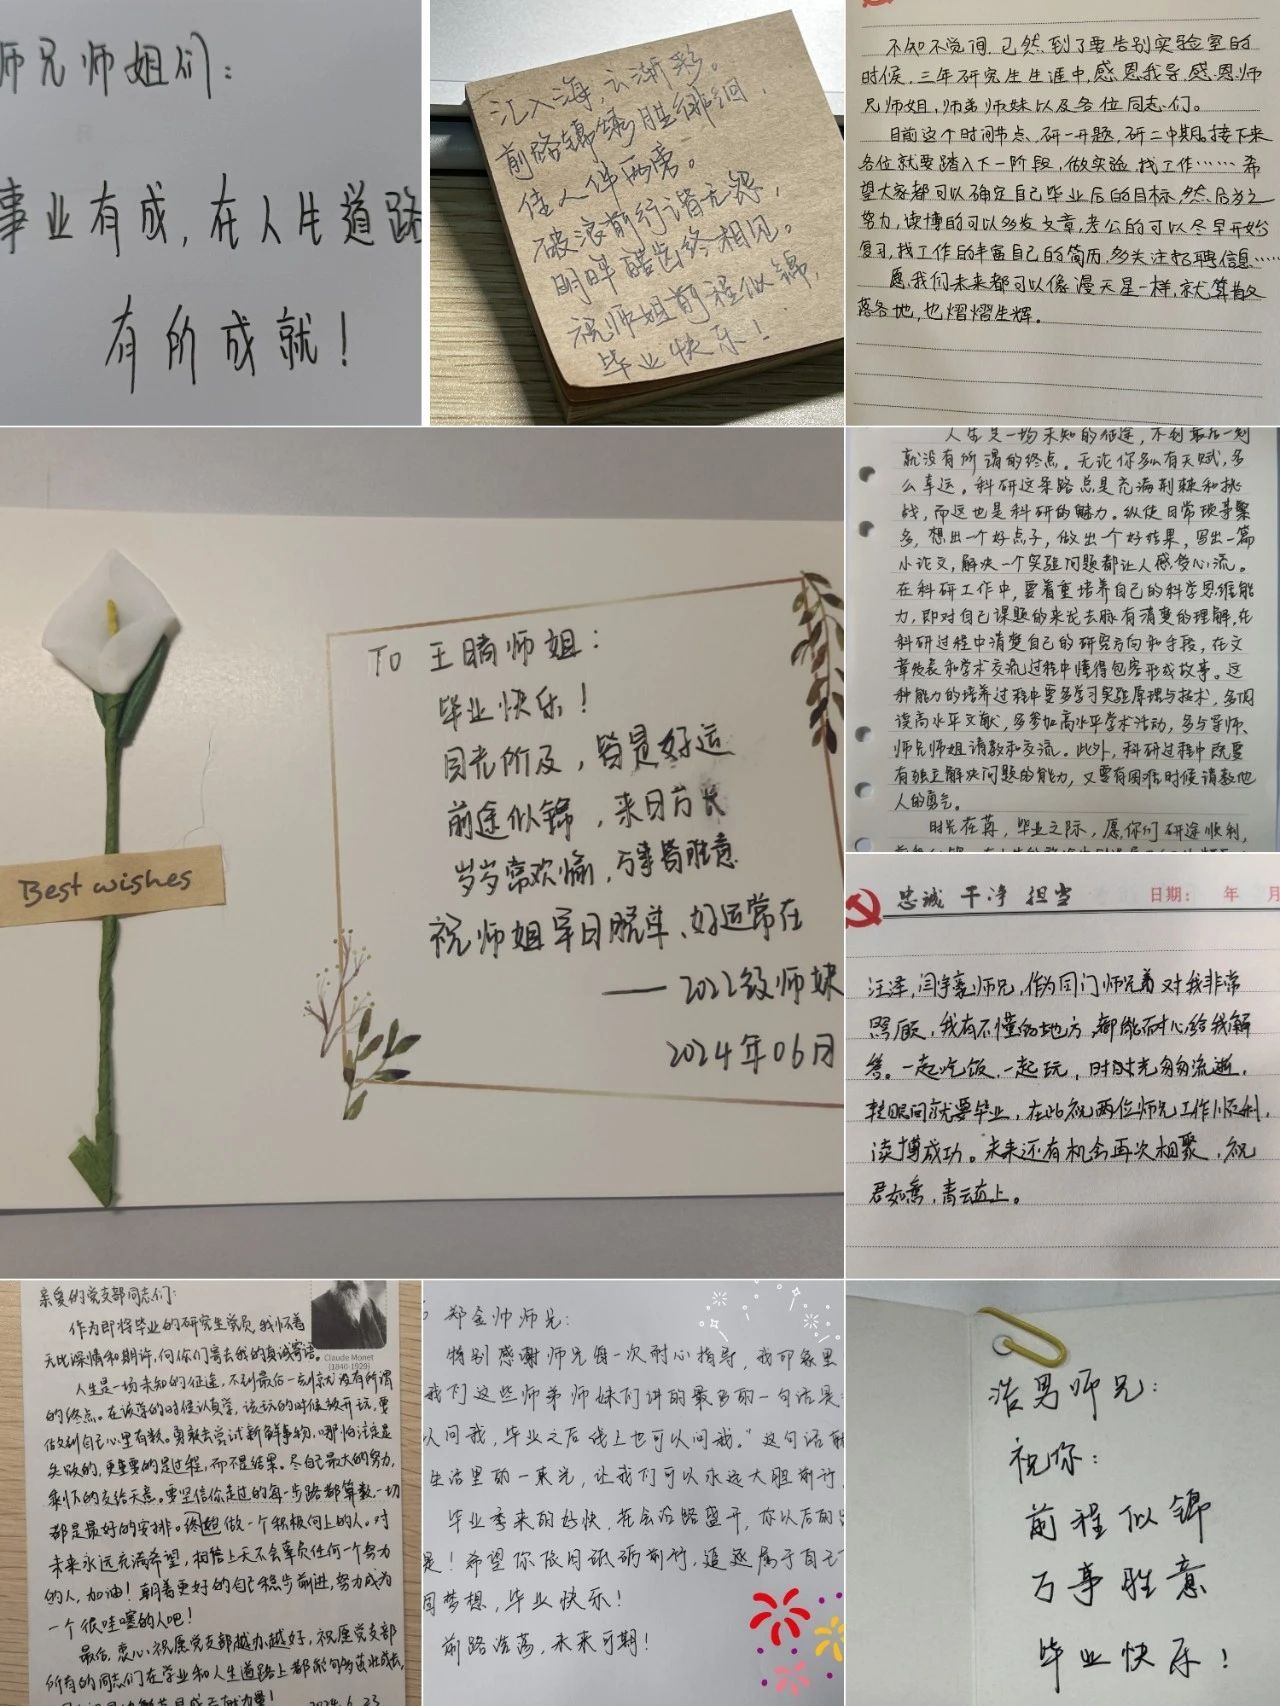 师兄师姐们：
事业有成，在人生道路
有所成就！
汇入海，云渐彩。
前路锦绣胜徘徊，
佳人伴两旁。
破浪前行谐无怨，
明眸皓齿终相见。
祝师姐前程似锦，
毕业快乐！
不知不觉间，已然到了要告别实验室的
时候，三年研究生生涯中，感恩我导，感恩师
兄师姐，师弟师妹以及各位同志们。
目前这个时间节点，研一开题，研二中期。接下来
各位就要踏入下一阶段，做实验，找工作……希
望大家都可以确定自己毕业后的目标，然后为之
努力，读博的可以多发文章，考公的可以尽早开始
复习，找工作的丰富自己的简历，多关注招聘信息……
愿我们未来都可以像漫天星一样，就算散
落各地，也熠熠生辉。
TO 王晴师姐：
毕业快乐！
目光所及，皆是好运
前途似锦，来日方长
岁岁常欢愉，万事皆胜意
祝师姐早日脱单、好运常在
——2022级师妹
2024年06月
Best wishes
人生是一场未知的征途，不到最后一刻
就没有所谓的终点。无论你多么有天赋，多
么幸运，科研这条路总是充满荆棘和挑
战，而这也是科研的魅力。纵使日常琐事繁
多，想出一个好点子，做出一个好结果，写出一篇
小论文，解决一个实验问题都让人感受心流。
在科研工作中，要着重培养自己的科学思维能
力，即对自己课题的来龙去脉有清楚的理解，在
科研过程中清楚自己的研究方向和手段，在文
章发表和学术交流过程中懂得包容形成故事。这
种能力的培养过程中要多学习实验原理与技术，多阅
读高水平文献，多参加高水平学术活动，多与导师、
师兄师姐请教和交流。此外，科研过程中既要
有独立解决问题的能力，又要有困难时候请教他
人的勇气。
时光荏苒，毕业之际，愿你们研途顺利，
忠诚 干净 担当
日期： 年 月
汪泽，闫宇豪师兄，作为同门师兄弟对我非常
照顾，我有不懂的地方，都能耐心给我解
答。一起吃饭，一起玩，时光匆匆流逝，
转眼间就要毕业，在此祝两位师兄工作顺利，
读博成功。未来还有机会再次相聚，祝
君如愿，青云直上。
亲爱的党支部同志们：
Claude Monet
(1840-1929)
作为即将毕业的研究生党员，我怀着
无比深情和期许，向你们寄去我的真诚寄语。
人生是一场未知的征途，不到最后一刻就没有所谓
的终点。在该学的时候认真学，该玩的时候放开玩，要
做到自己心里有数。勇敢去尝试新鲜事物，哪怕注定是
失败的，更重要的是过程，而不是结果。尽自己最大的努力，
剩下的交给天意。要坚信你走过的每一步路都算数，一切
都是最好的安排。做一个积极向上的人。对
未来永远充满希望，相信上天不会辜负任何一个努力
的人，加油！朝着更好的自己稳步前进，努力成为
一个很哇噻的人吧！
最后，衷心祝愿党支部越办越好，祝愿党支部
所有的同志们在学业和人生道路上都能够茁壮成长，
2024.6.23
郑金帅师兄：
特别感谢师兄每一次耐心指导，我印象里
我们这些师弟师妹们讲的最多的一句话是：
以问我，毕业之后线上也可以问我。”这句话就
生活里的一束光，让我们可以永远大胆前行，
毕业季来的好快，花会沿路盛开，你以后的
是！希望你依旧砥砺前行，追逐属于自己
梦想，毕业快乐！
前路浩荡，未来可期！
浩男师兄：
祝你：
前程似锦
万事胜意
毕业快乐！